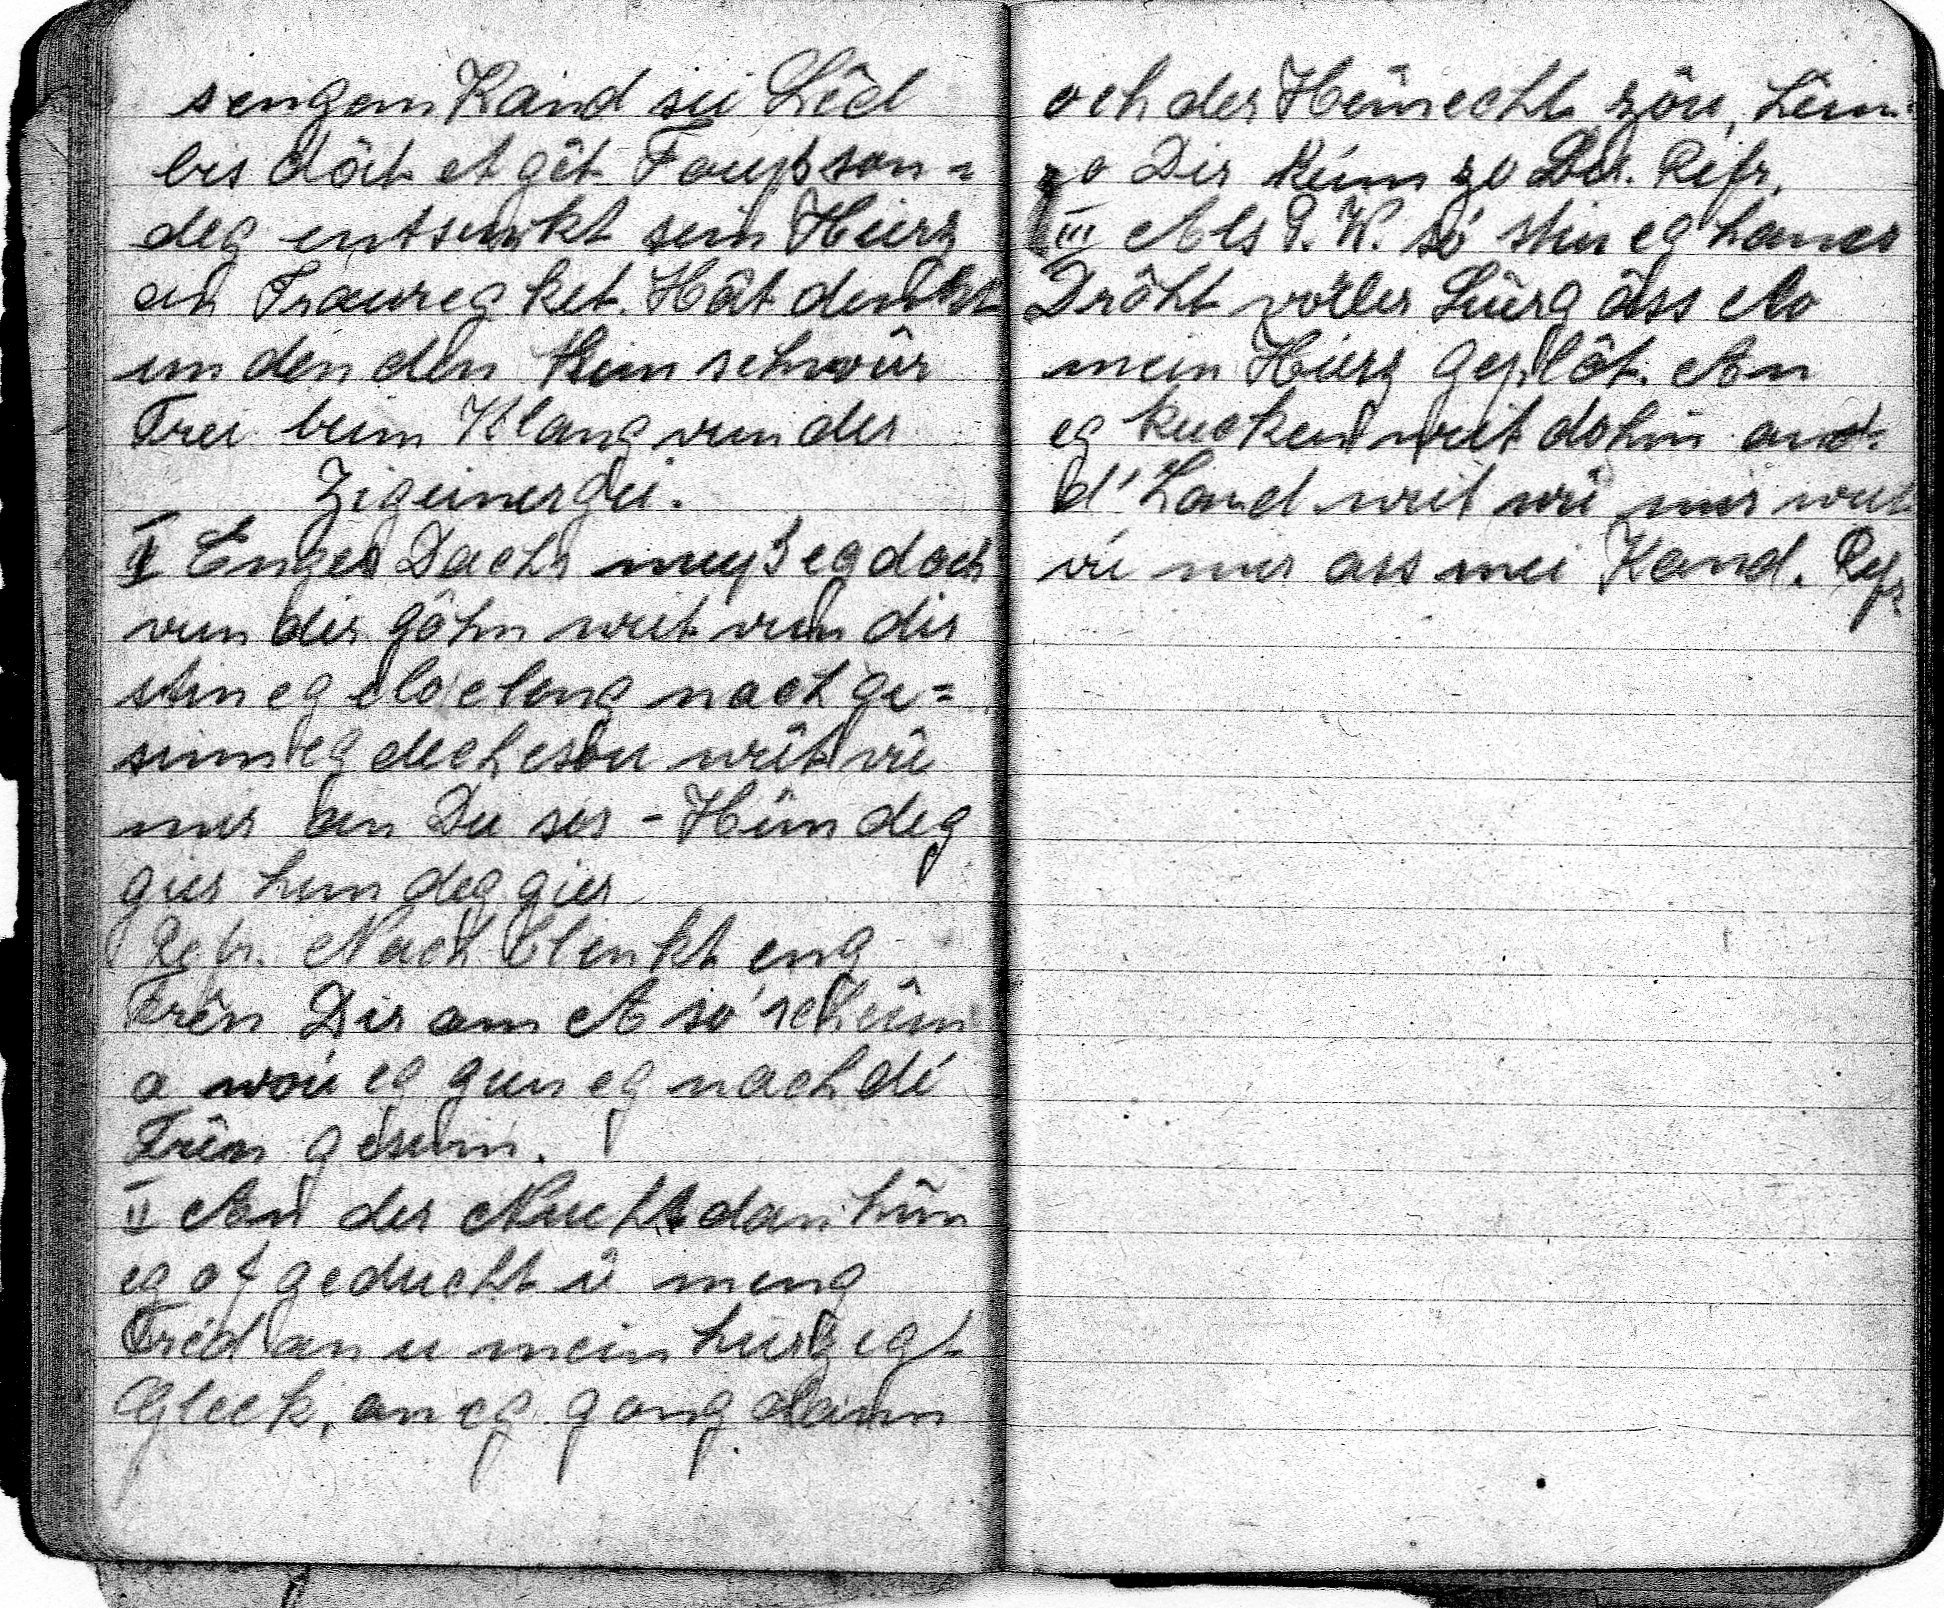 sengem Kand sei Lêd
bis dôit et gêt Foussson=
deg entsenkt sein Hierz
an Trauregket. Hât denkt
un den den him schwûr
Trei beim Klang vun der
Zigeinergei.
II Enges Dachs muyß eg doch
vun dir gôhn weit vun dir
stin eg elo elong nach ge=
sinn eg dech esou weit vû
mir an Du sos - Hûn deg
gier hun deg gier
Refr. Nach blinkt eng
Trên Dir am A so' schein
a wou eg gun eg nach dé
Trên gesinn.
II An der Nucht dan hûn
eg of geducht û meng
Frêd an u mein herzegt
Gleck, an eg gong dann
och der Hêmecht zôu, kêm
zo Dir kêm zo Dir. Refr.
III Als P. W. só stin eg haner
Drôht voller Suerg ass elo
mein Hierz geplôt. An
eg kucken weit dohin an
d' Land weit vû mir weit
vû mir ass mei Kand. Refr